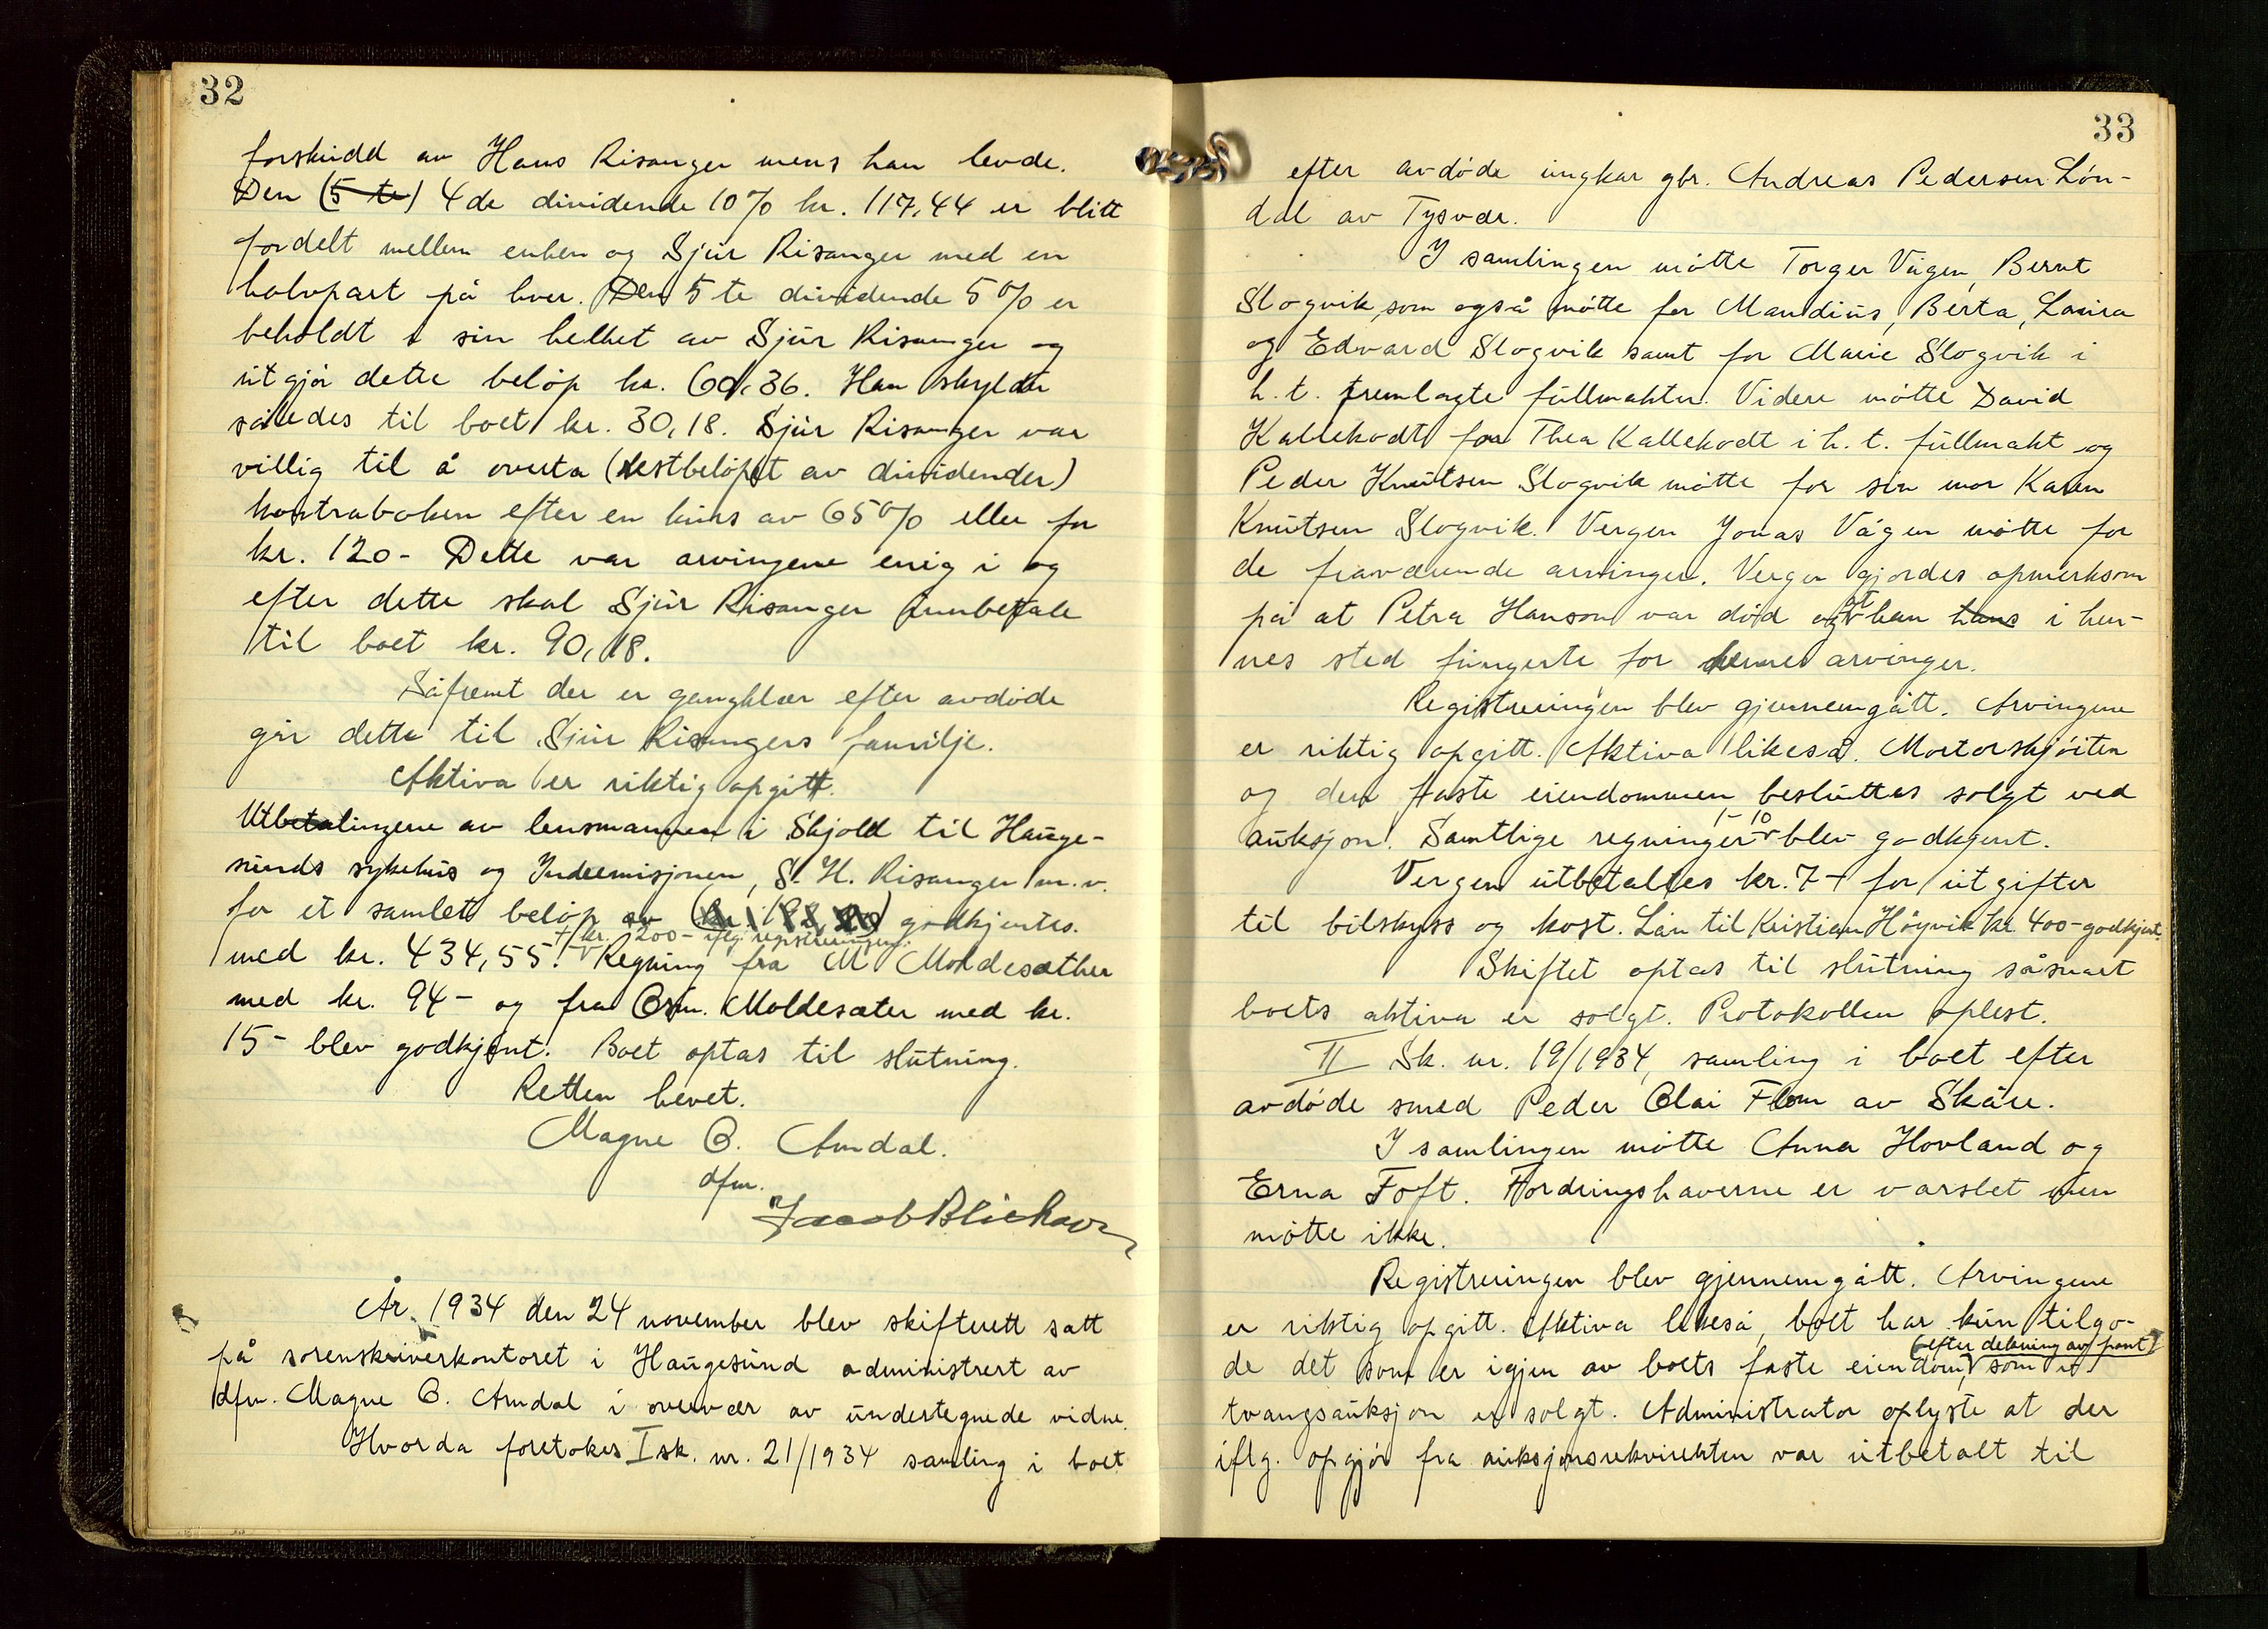 32
forskudd av Hans Risanger mens han levde.
Den (5 te) 4de dividende 10% kr. 117,44 er blitt
fordelt mellem enken og Sjur Risanger med en
halvpart på hver. Den 5te dividende 5% er
beholdt i sin helhet av Sjur Risanger og
utgjør dette beløp kr. 60,36. Han skylder
således til boet kr. 30,18. Sjur Risanger var
villig til å overta (restbeløpet av dividender)
kontraboken efter en kurs av 65% eller for
kr. 120- Dette var arvingene enig i og
efter dette skal Sjur Risanger innbetale
til boet kr. 90,18.
Såfremt der er gangklær efter avdøde
går dette til Sjur Risangers familje.
Aktiva er riktig opgitt.
Utbetalingene av lensmannen i Skjold til Hauge-
sunds sykehus og Indremisjonen, S. H. Risanger m.v.
for et samlet beløp av godkjentes.
+ kr. 200- iflg. registreringen.
med kr. 434,55. Regning fra M Moldesæther
med kr. 94- og fra Osm. Moldesæter med kr.
15- blev godkjent. Boet optas til slutning.
Retten hevet.
Magne O. Amdal.
dfm.
Jacob Blikhavn
År 1934 den 24 november blev skifterett satt
på sorenskriverkontoret i Haugesund administrert av
dfm. Magne O. Amdal i overvær av undertegnede vidne.
Hvorda foretokes I sk. nr. 21/1934 samling i boet
33
efter avdøde ungkar gbr. Andreas Pedersen Løn-
dal av Tysvær.
I samlingen møtte Torger Vågen, Bernt
Slogvik, som også møtte for Mandius, Berta, Laura
og Edvard Slogvik samt for Marie Slogvik i
h. t. fremlagte fullmakter. Videre møtte David
Kallekodt for Thea Kallekodt i h. t. fullmakt og
Peder Knutsen Slogvik møtte for sin mor Karen
Knutsen Slogvik. Vergen Jonas Vågen møtte for
de fraværende arvinger. Vergen gjordes opmerksom
på at Petra Hanson var død og at han hans i hen-
nes sted fungerte for hennes arvinger.
Registreringen blev gjennemgått. Arvingene
er riktig opgitt. Aktiva likeså. Mortorskjøiten
og den faste eiendommen besluttes solgt ved
auksjon. Samtlige regninger 1-10 blev godkjent.
Vergen utbetaltes kr. 7- for utgifter
til bilskyss og kost. Lån til Kristian Høyvik kr. 400- godkjent.
Skiftet optas til slutning såsnart
boets aktiva er solgt. Protokollen oplest.
II Sk. nr. 19/1934, samling i boet efter
avdøde smed Peder Olai Flom av Skåre.
I samlingen møtte Anna Hovland og
Erna Toft. Fordringshaverne er varslet men
møtte ikke.
Registreringen blev gjennemgått. Arvingene
er riktig opgitt. Aktiva likeså, boet har kun tilgo-
de det som er igjen av boets faste eiendom, (efter dekning av pant) som ved
tvangsauksjon er solgt. Administrator oplyste at der
iflg. opgjør fra auksjonsrekvirenten var utbetalt til